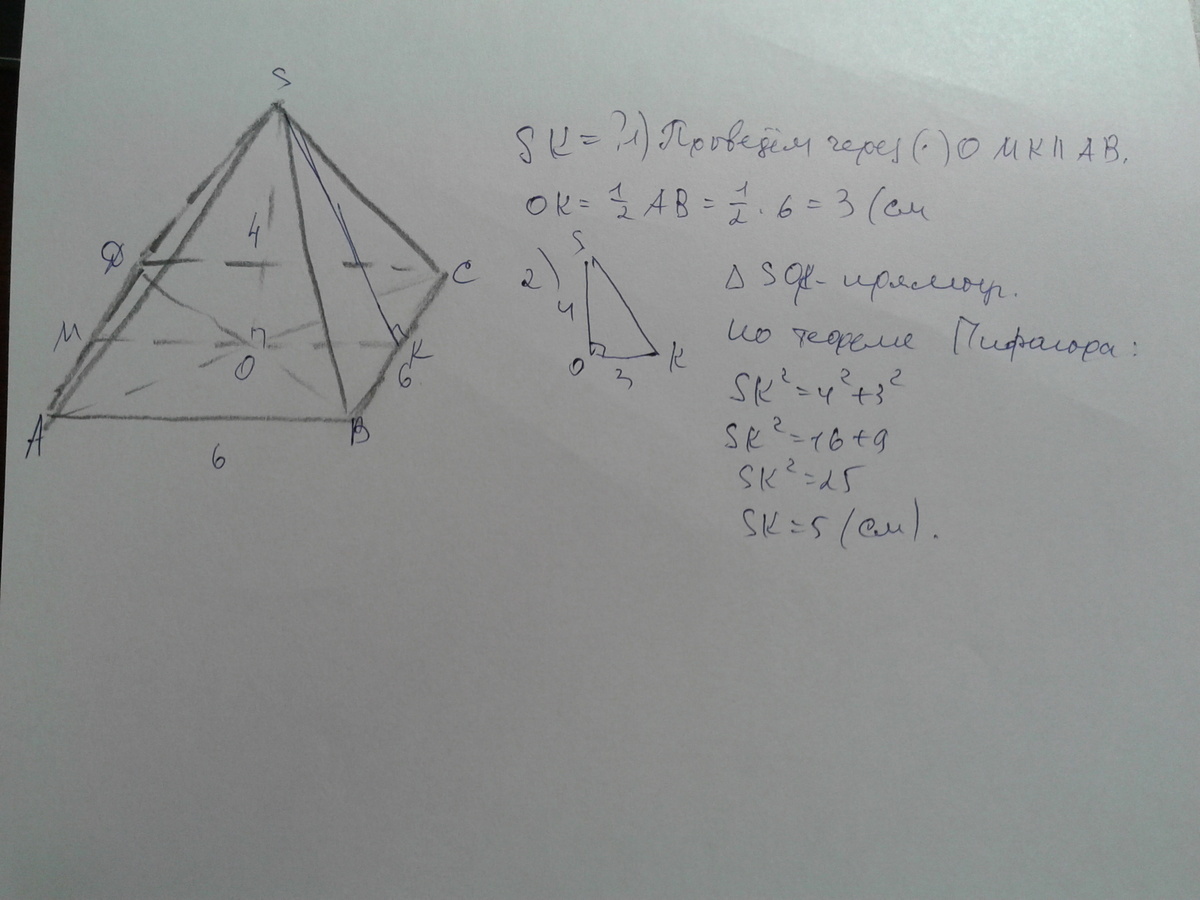 S
SK = ? 1) Проведём через (·) O MK || AB.
OK = 1/2 AB = 1/2 · 6 = 3 (см
4
Д
C
M
O
K
6
A
B
6
2)
S
4
O
3
K
Δ SOK - прямоуг.
по теореме Пифагора:
SK² = 4² + 3²
SK² = 16 + 9
SK² = 25
SK = 5 (см).